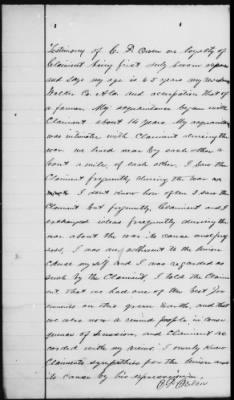 Testimony of C. P. on loyalty of
Claimant being first duly sworn deposes
and says my age is 65 years my residence
Walker Co. Ala and occupation that of
a farmer. My acquaintance began with
Claimant about 14 years. My acquaintance
was intimate with Claimant during the
war we lived near by each other a
bout a mile of each other. I saw the
Claimant frequently during the war
I don't know how often I saw the
Claimant but frequently, Claimant and I
exchanged ideas frequently during the
war about the war its cause and prog
ress, I was an adherent to the Union
Cause my self and I was regarded as
such by the Claimant, I told the Claim
ant that we had one of the best
on this green Earth, and that
we were now a ruined people in conse
quence of Secession, and Claimant ac
corded with my views I only know
Claimants sympathies for the Union and
its cause by his expressions.
C. P.